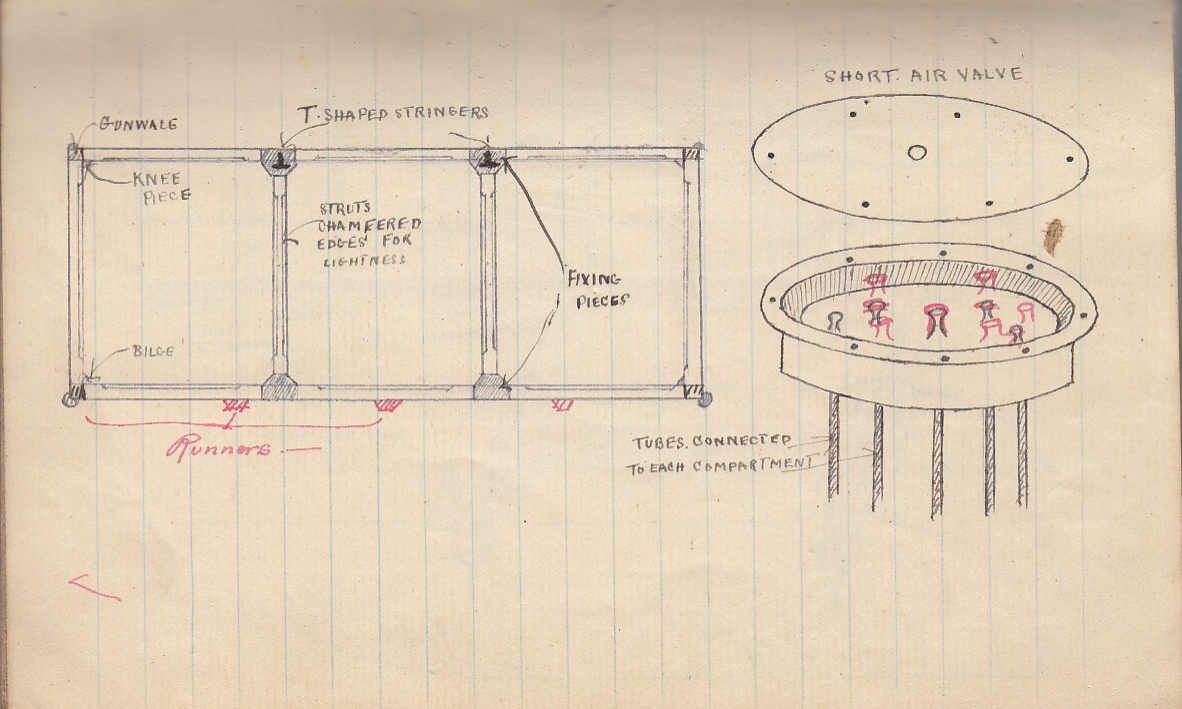 SHORT. AIR VALVE
GUNWALE
T. SHAPED STRINGERS
KNEE
PIECE
STRUTS
CHAMFERED
EDGES FOR
LIGHTNESS
FIXING
PIECES
BILGE
Runners
TUBES. CONNECTED
TO EACH COMPARTMENT